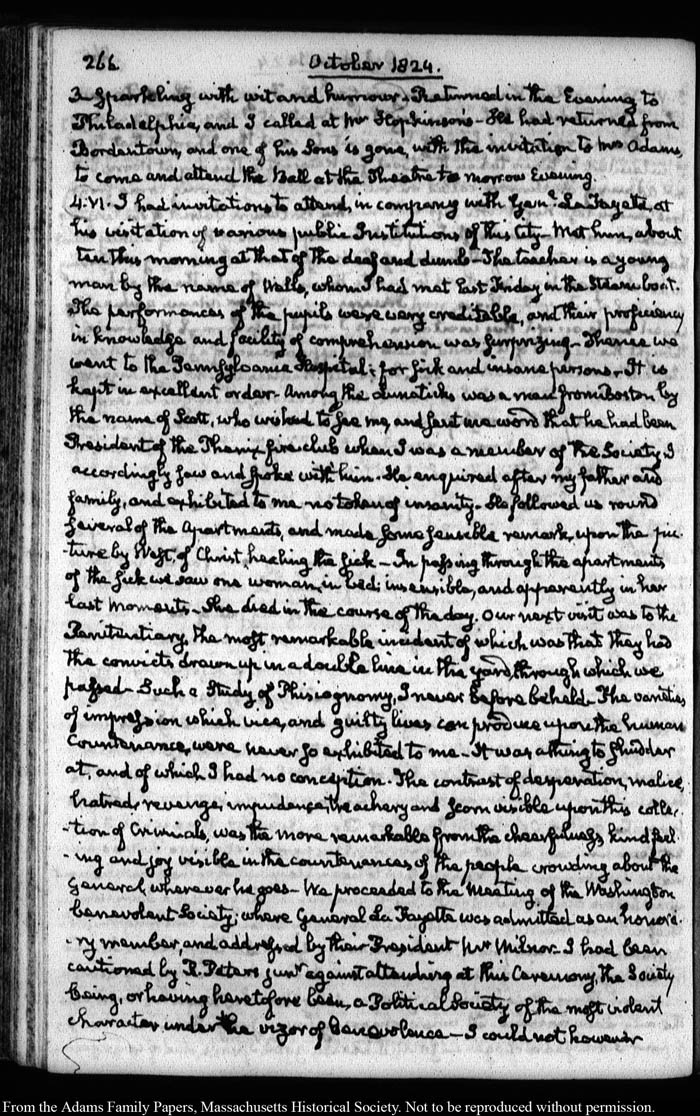 266
October 1824.
3. Sparkling with wit and humour. Returned in the Evening to
Philadelphia, and I called at Mr Hopkinson's. He had returned from
Bordentown, and one of his Sons is gone with the invitation to Mrs Adams,
to come and attend the Ball at the Theatre to morrow Evening.
4. VI. I had invitations to attend, in company with Genl. La Fayette, at
his visitation of various public Institutions of this City. Met him, about
ten this morning at that of the deaf and dumb. The teacher is a young
man by the name of Walls, whom I had met last Friday in the Steam boat.
The performances of the pupils were very creditable, and their proficiency
in knowledge and facility of comprehension was surprizing. Thence we
went to the Pennsylvania Hospital; for sick and insane persons. It is
kept in excellent order. Among the lunaticks was a man from Boston by
the name of Scott, who wished to see me, and sent me word that he had been
President of the Phœnix fire club when I was a member of the Society. I
accordingly saw and spoke with him. He enquired after my father and
family, and exhibited to me no token of insanity. He followed us round
several of the Apartments, and made some sensible remarks, upon the pic-
-ture by West, of Christ, healing the sick — In passing through the apartments
of the sick we saw one woman, in bed; insensible, and apparently in her
last moments. She died in the course of the day. Our next visit was to the
Penitentiary, the most remarkable incident of which was that they had
the convicts drawn up in a double line in the yard, through which we
passed. Such a Study of Phisiognomy, I never before beheld. The varieties
of impression which vice, and guilty lives can produce upon the human
Countenance, were never so exhibited to me. It was a thing to shudder
at, and of which I had no conception. The contrast of desperation, malice,
hatred, revenge, impudence, treachery and scorn visible upon this collec-
-tion of Criminals, was the more remarkable from the cheerfulness, kind feel-
-ing and joy visible in the countenances of the people crowding about the
General, wherever he goes. We proceeded to the Meeting of the Washington
benevolent Society; where General La Fayette was admitted as an honora-
-ry member, and addressed by their President Mr Milnor. I had been
cautioned by R. Peters junr against attending at this Ceremony, the Society
being, or having heretofore been, a Political Society of the most violent
character under the vizor of Benevolence — I could not however
From the Adams Family Papers, Massachusetts Historical Society. Not to be reproduced without permission.